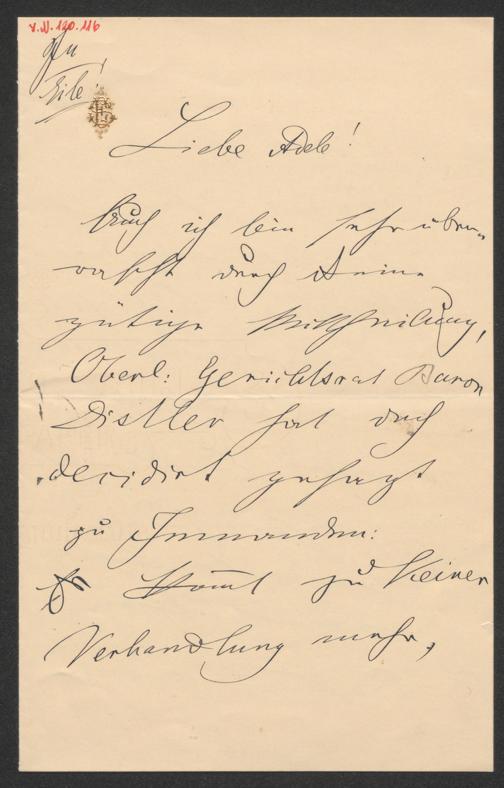 V.N. 120.116
In
Eile!
Liebe Adele!
Auch ich bin sehr über-
rascht durch Deine
gütige Mittheilung,
Oberl: Gerichtsrat Baron
Distler hat doch
decidirt gesagt
zu Jemanden:
Es kom̄t zu keiner
Verhandlung mehr,